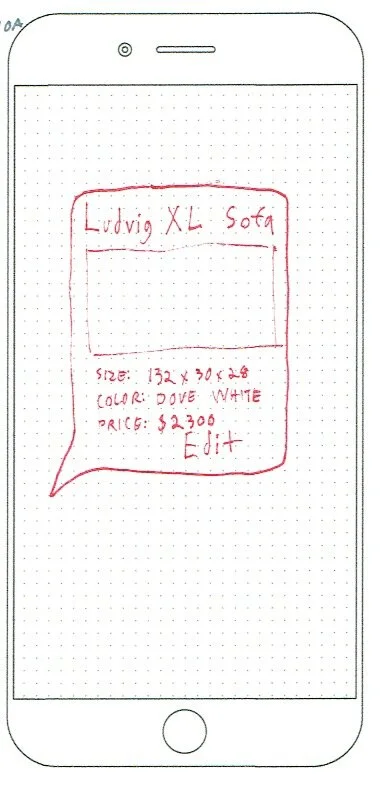 10A
Ludvig XL Sofa
SIZE: 132 x 30 x 28
COLOR: DOVE WHITE
PRICE: $2300
Edit